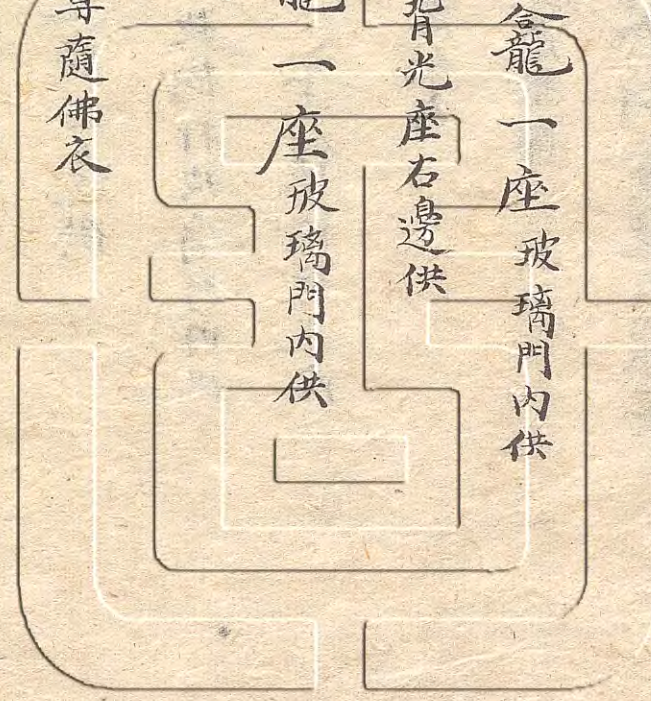 龕一座玻璃門内供
背光座右邊供
一座玻璃門内供
尊隨佛衣